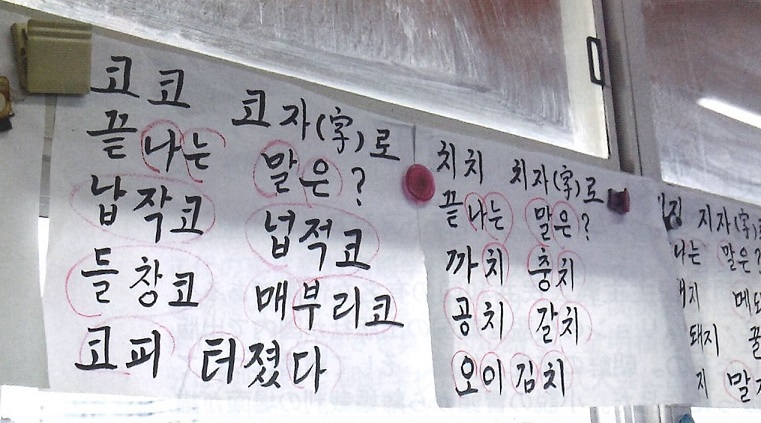 코코 코자(字)로
끝나는 말은?
납작코 넙적코
들창코 매부리코
코피 터졌다
치치 치자(字)로
끝나는 말은?
까치 충치
공치 갈치
오이김치
지자(字)로
나는 말은?
돼지